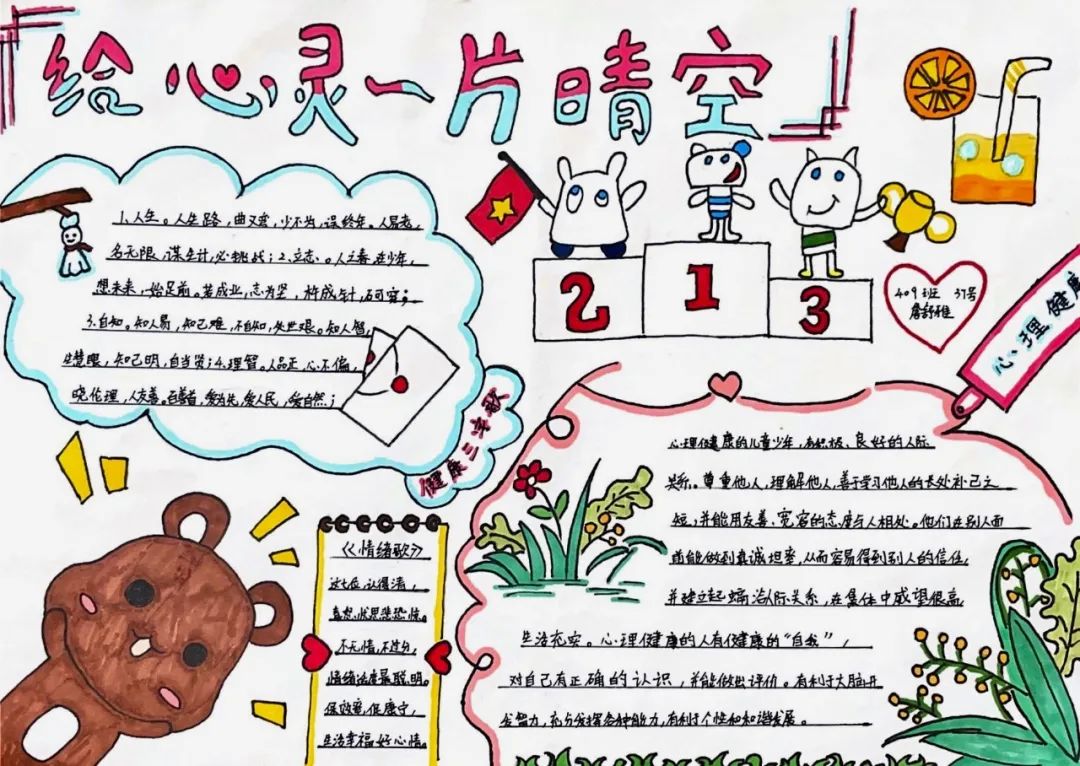 给心灵一片晴空
1、人生。人生路,曲又弯,少不为,误终年。人易老,
名无限,谋生计,必挑战;2、立志。人立春,在少年,
想未来,始足前。若成业,志为坚,杵成针,石可穿;
3.自知。知人易,知己难,不自知,处世艰。知人智,
生慧眼,知己明,自当贤;4.理智。人品正,心不偏,
晓伦理,人友善。百善者,爱为先,爱人民,爱自然;
健康三字歌
2
1
3
409班 37号
詹舒雅
心理健康
《情绪歌》
这七位,认得清,
喜怒,忧思悲恐惊。
不无情,不过分,
情绪适度最聪明。
保效率,促康宁,
生活幸福好心情。
心理健康的儿童少年,有积极、良好的人际
关系。尊重他人,理解他人,善于学习他人的长处补己之
短,并能用友善、宽容的态度与人相处。他们在别人面
前能做到真诚坦率,从而容易得到别人的信任,
并建立起 人际关系,在集体中威望很高
生活充实。心理健康的人有健康的“自我”,
对自己有正确的认识,并能做出评价。有利于大脑开
发智力,充分发挥各种能力,有利于个性和和谐发展。